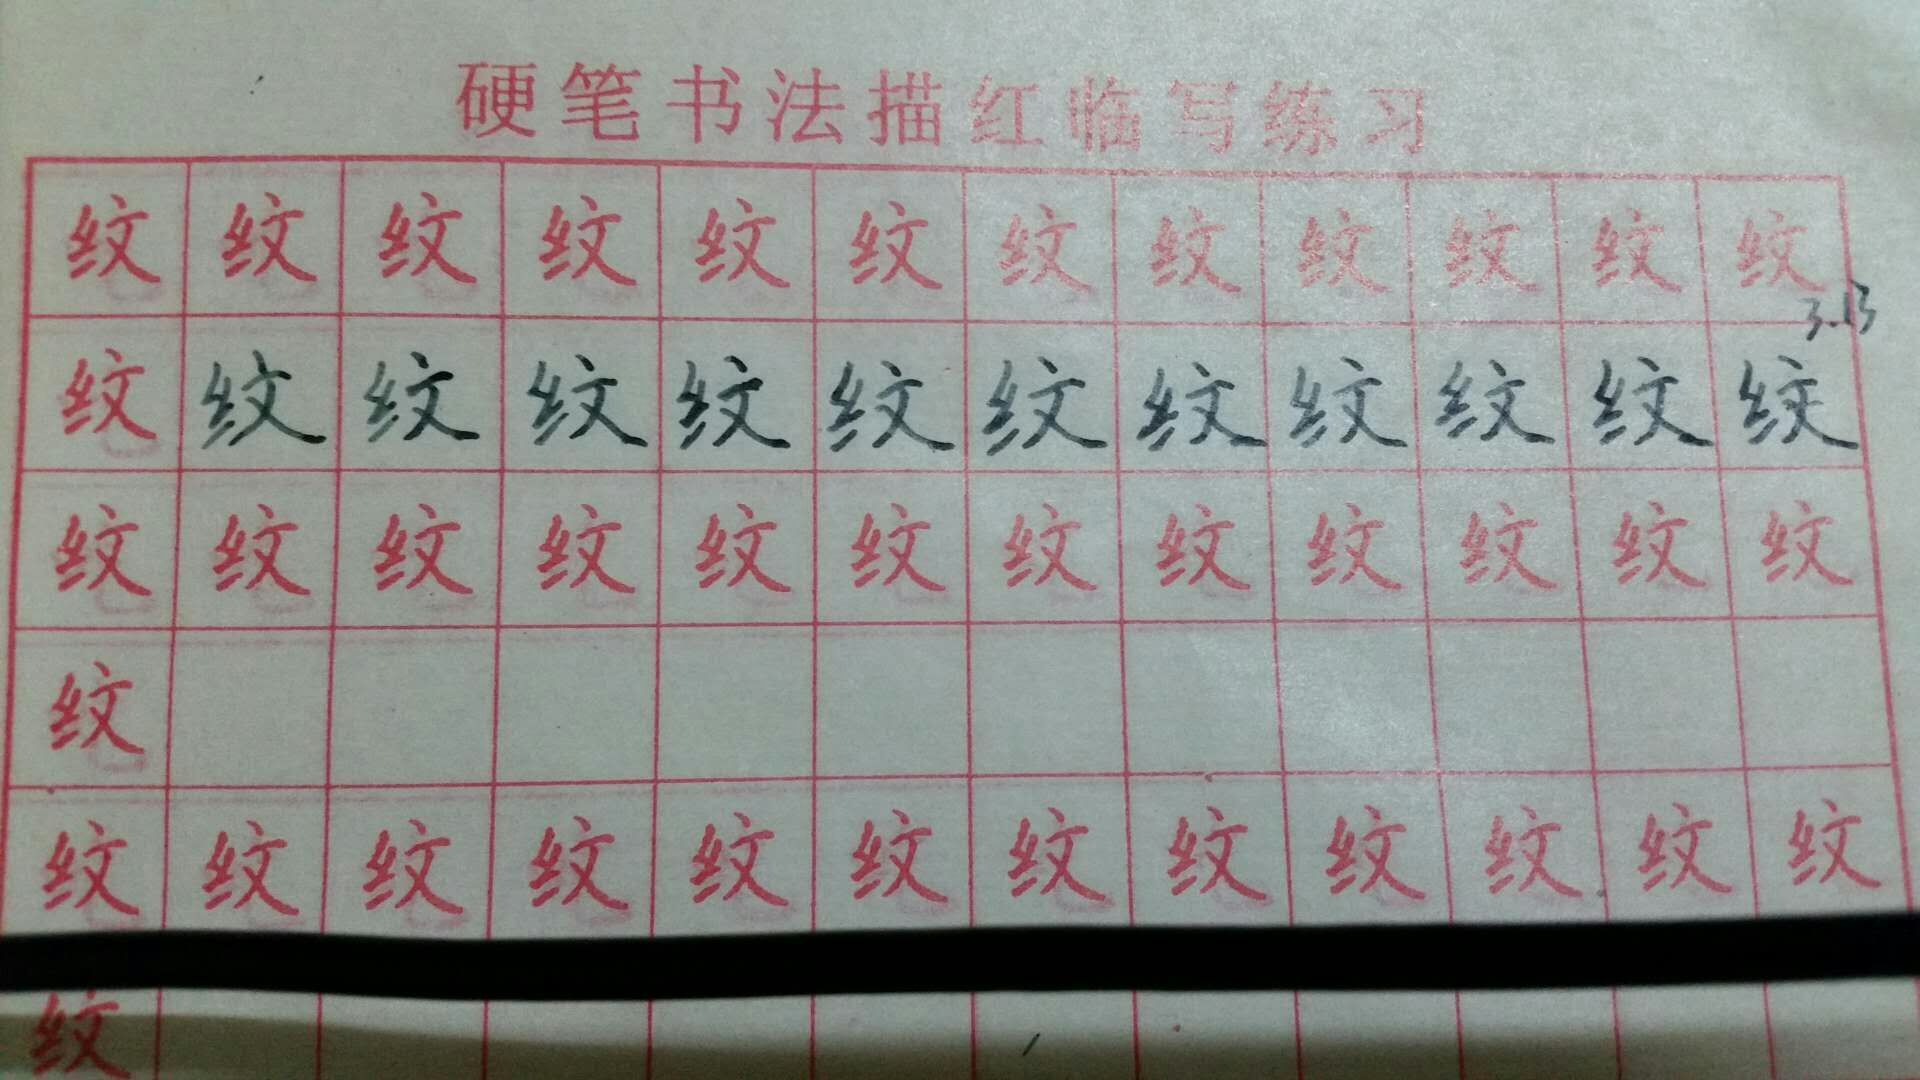 硬笔书法描红临写练习
纹 纹 纹 纹 纹 纹 纹 纹 纹 纹 纹 纹
3.13
纹 纹 纹 纹 纹 纹 纹 纹 纹 纹 纹 纹
纹 纹 纹 纹 纹 纹 纹 纹 纹 纹 纹 纹
纹
纹 纹 纹 纹 纹 纹 纹 纹 纹 纹 纹 纹
纹